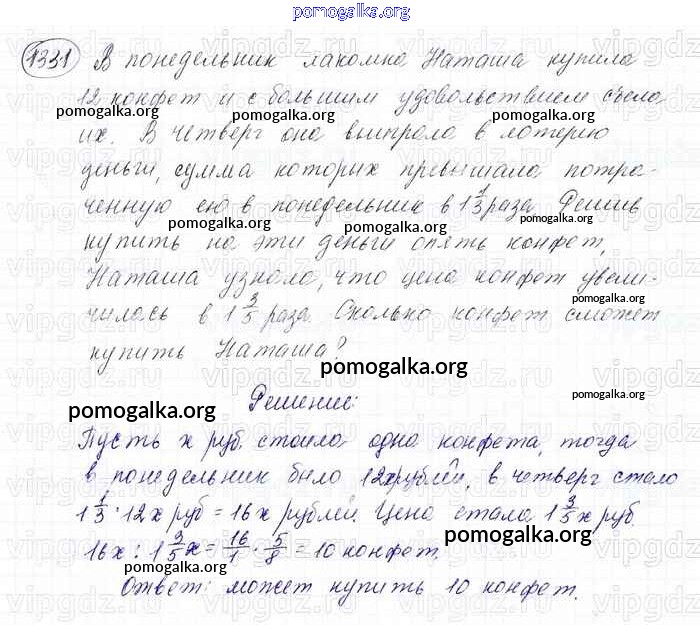 pomogalka.org
1331 В понедельник лакомка Наташа купила
12 конфет и с большим удовольствием съела
их. В четверг она выиграла в лотерею
деньги, сумма которых превышала потра-
ченную ею в понедельник в 1 1/3 раза. Решив
купить на эти деньги опять конфет,
Наташа узнала, что цена конфет увели-
чилась в 1 3/5 раза. Сколько конфет сможет
купить Наташа?
pomogalka.org
Решение:
pomogalka.org
Пусть x руб. стоила одна конфета, тогда
в понедельник было 12x рублей, в четверг стало
1 1/3 · 12x руб = 16x рублей. Цена стала 1 3/5 x руб.
16x : 1 3/5 x = 16/1 · 5/8 = 10 конфет.
Ответ: может купить 10 конфет.